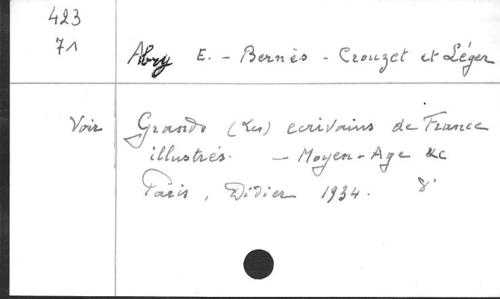 423
71
Abry E. - Bernès - Crouzet et Léger
Voir Grands (Les) ecrivains de France
illustrés. - Moyen-Age &c
Paris, Didier 1934. 8°